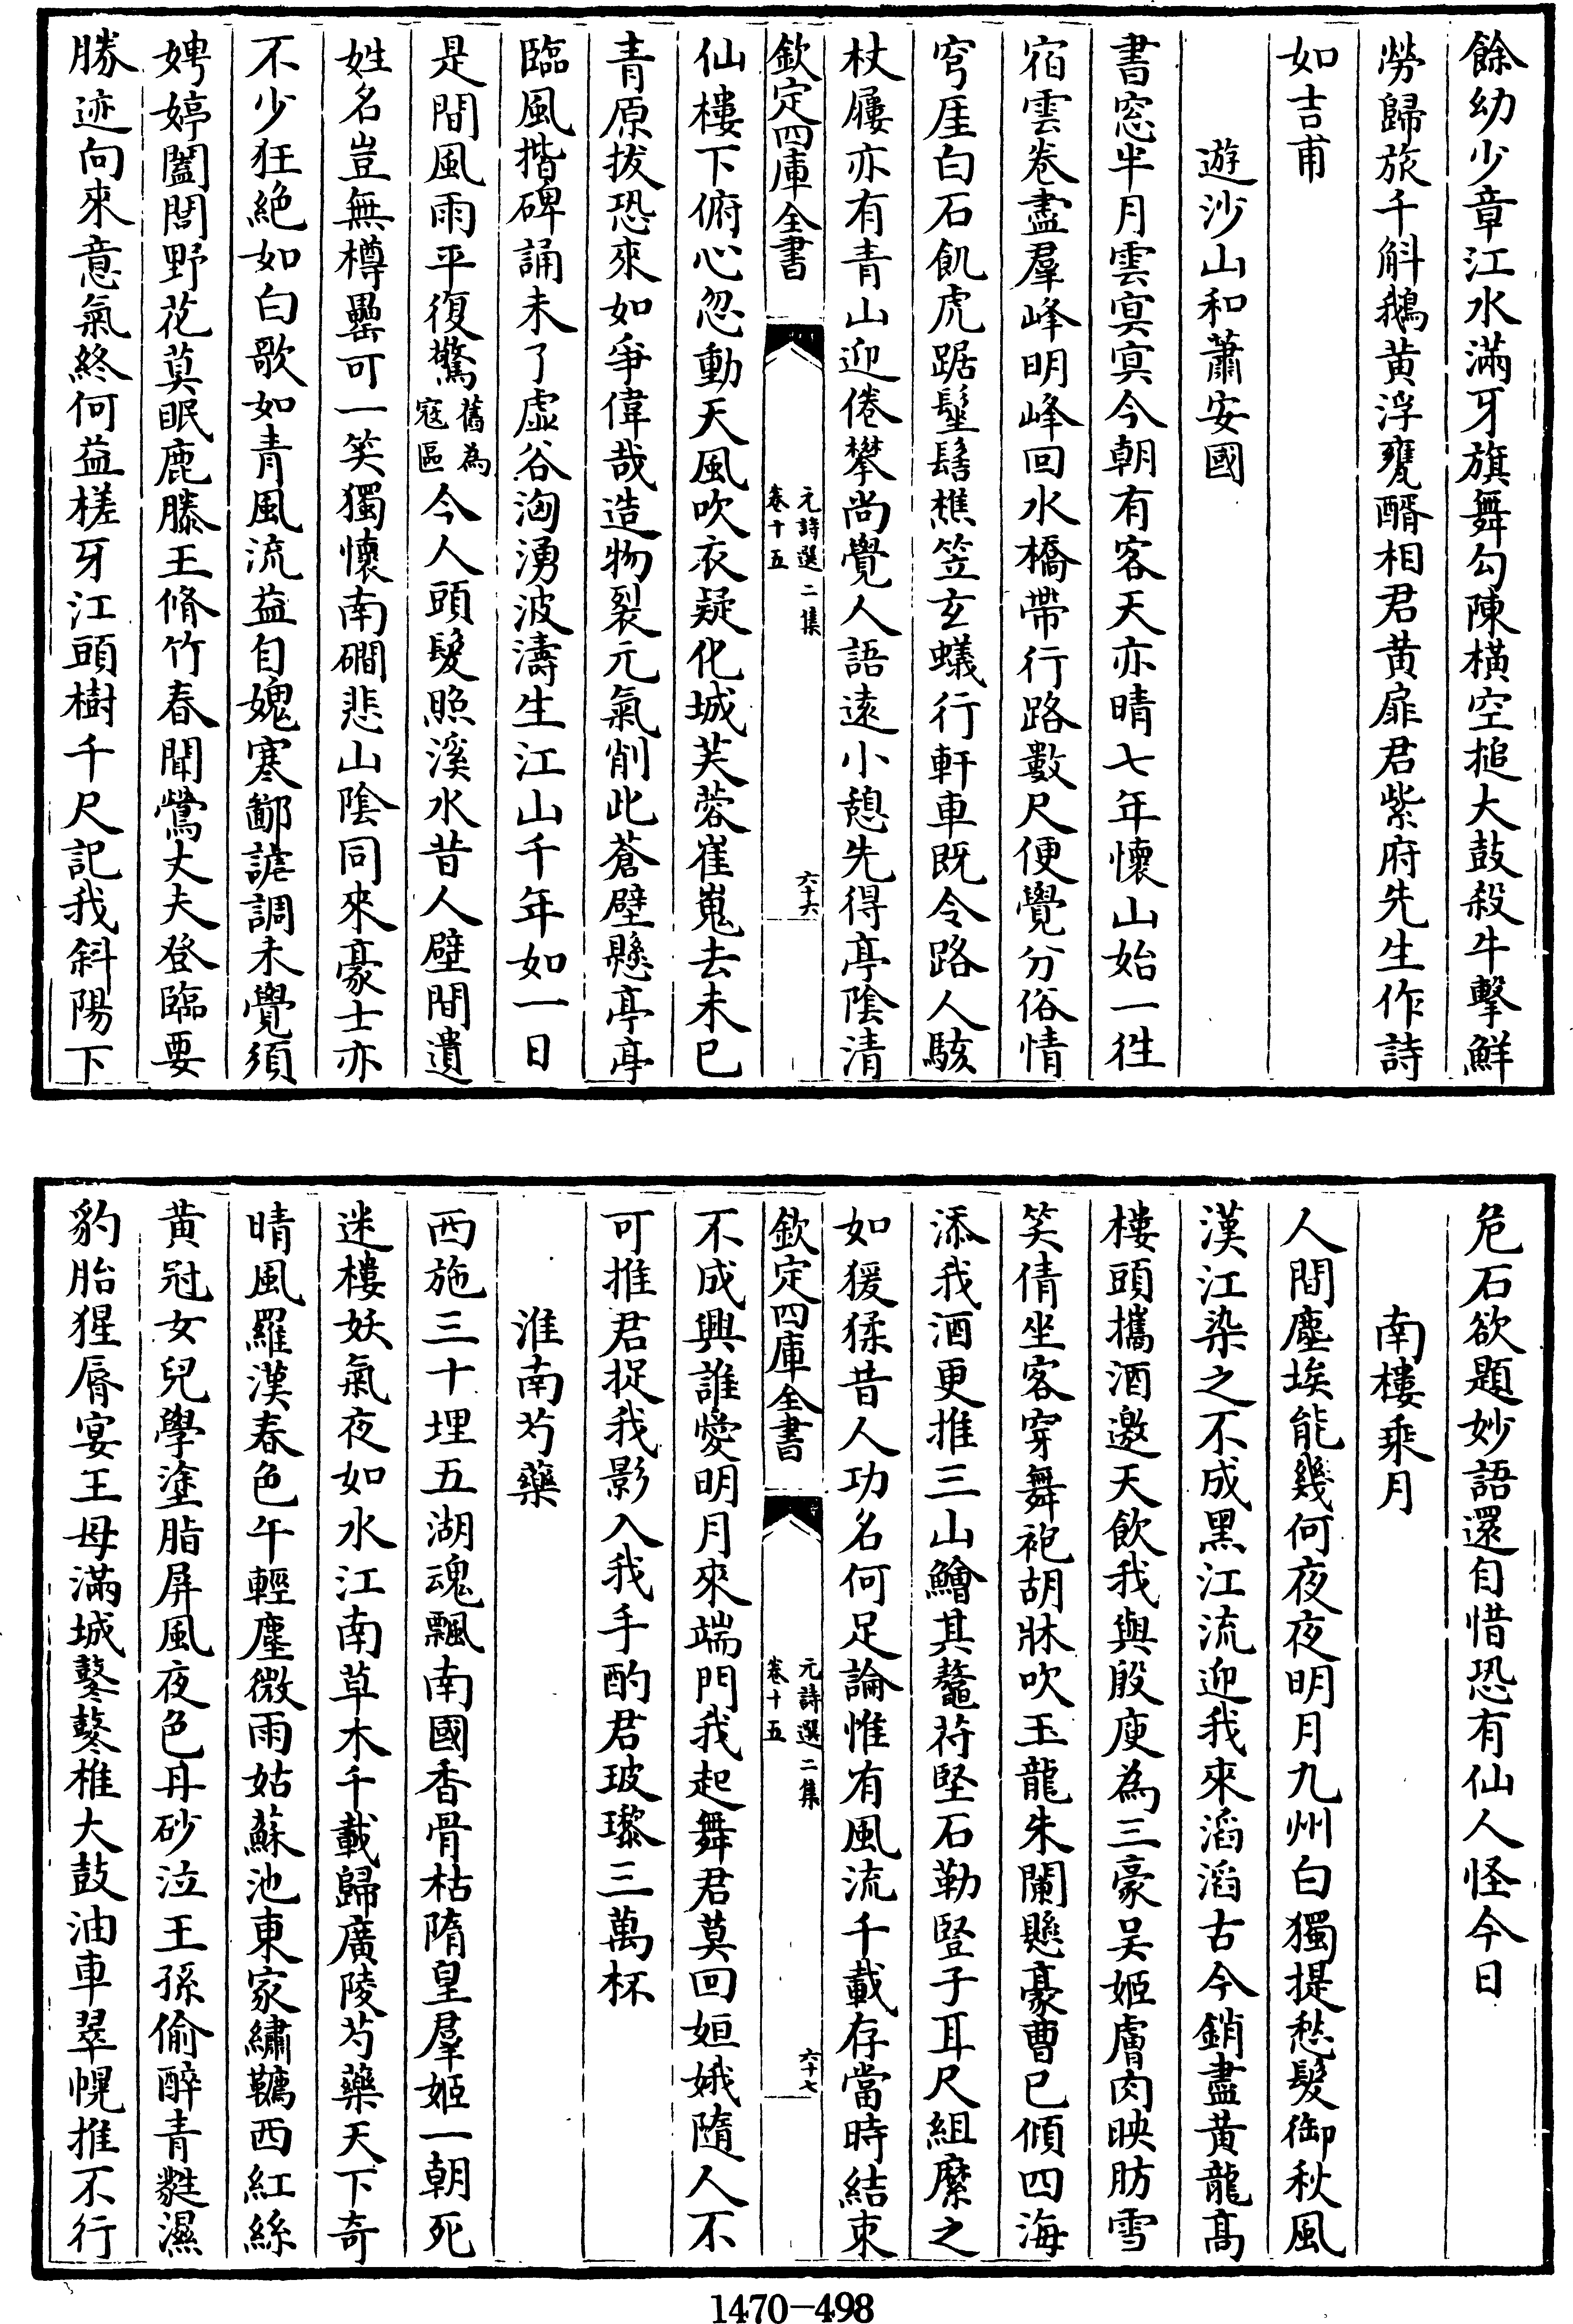 餘幼少章江水滿牙旗舞勾陳橫空搥大鼓殺牛擊鮮
勞歸旅千斛鵝黄浮甕醑相君黄扉君紫府先生作詩
如吉甫
遊沙山和蕭安國
書窓半月雲冥冥今朝有客天亦晴七年懷山始一徃
宿雲卷盡羣峰明峰回水橋帶行路數尺便覺分俗情
穹厓白石飢虎踞髽髻樵笠玄蟻行軒車既令路人駭
杖屨亦有青山迎倦攀尚覺人語遠小憩先得亭陰清
欽定四庫全書
元詩選二集
卷十五
六十六
仙樓下俯心忽動天風吹衣疑化城芙蓉崔嵬去未已
青原拔恐來如爭偉哉造物裂元氣削此蒼壁懸亭亭
臨風揩碑誦未了虛谷洶湧波濤生江山千年如一日
是間風雨平復驚舊為寇區今人頭髮照溪水昔人壁間遺
姓名豈無樽罍可一笑獨懷南磵悲山陰同來豪士亦
不少狂絶如白歌如青風流益自媿寒鄙諕調未覺須
娉婷闔閭野花莫眠鹿滕王脩竹春聞鶯丈夫登臨要
勝迹向來意氣終何益槎牙江頭樹千尺記我斜陽下
危石欲題妙語還自惜恐有仙人怪今日
南樓乘月
人間塵埃能幾何夜夜明月九州白獨提愁髮御秋風
漢江染之不成黑江流迎我來滔滔古今銷盡黄龍髙
樓頭攜酒邀天飲我與殷庾為三豪吴姬膚肉映肪雪
笑倩坐客穿舞袍胡牀吹玉龍朱闌懸豪曹已傾四海
添我酒更推三山鱠其鼇苻堅石勒豎子耳尺組縻之
如猨猱昔人功名何足論惟有風流千載存當時結束
欽定四庫全書
元詩選二集
卷十五
六十七
不成興誰愛明月來端門我起舞君莫回姮娥隨人不
可推君捉我影入我手酌君玻瓈三萬杯
淮南芍藥
西施三十埋五湖魂飄南國香骨枯隋皇羣姬一朝死
迷樓妖氣夜如水江南草木千載歸廣陵芍藥天下奇
晴風羅漢春色午輕塵微雨姑蘇池東家繡韉西紅絲
黄冠女兒學塗脂屏風夜色丹砂泣王孫偷醉青㲲濕
豹胎猩脣宴王母滿城鼕鼕椎大鼓油車翠幌推不行
1470-498